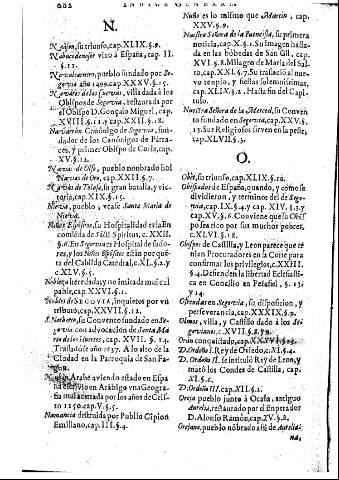 682 INDICE GENERAL
N.
Nasón, su triunfo, cap. XLIX. §.9.
Nabucodonosor vino à España, cap. II.
§. 11.
Navalcarnero, pueblo fundado por Se-
govia año 1499. cap. XXXV. §. 15.
Navares de las Cuevas, villa dada à los
Obispos de Segovia, restaurada por
el Obispo D. Gonçalo Miguel, cap.
XVIII. §. 13. y cap. XXII. §. 18.
Navarrón Canónigo de Segovia, fun-
dador de los Canónigos de Párra-
ces, y primer Obispo de Coria, cap.
XV. §. 12.
Navas de Oro, pueblo nonbrado hoi
Navas de Oro, cap. XXII. §. 7.
Navas de Tolosa, su gran batalla, y vic-
toria, cap. XIX. §. 15.
Nieva, pueblo, vease Santa Maria de
Nieva.
Niños Espósitos, su Hospitalidad es la En-
comienda de Sacti Spiritus, c. XXII.
§. 6. En Segovia es Hospital de sudo-
res, y los Niños Espósitos están por que-
ta del Cabildo Catedral, c. XL. §. 2. y
c. XLV. §. 5.
Nobleza heredada, y no imitada mas cul
pable, cap. XXVI. §. 11.
Nobles de SEGOVIA, inquietos por un
tributo, cap. XXVII. §. 12.
S. Norberto, su Convento fundado en Se-
govia con advocacion de Santa Ma-
ria de los Huertos, cap. XVII. §. 14.
Trasladose año 1637. A lo alto de la
Ciudad en la Parroquia de San Fa-
gun.
Nubiense, Arabe aviendo estado en Espa-
ña escrivio en Arábigo una Geogra-
fia mui acertada por los años de Cris-
to 1150. cap. V. §. 5.
Numancia destruida por Publio Cipion
Emiliano, cap. III. §. 4.
Nuño es lo mismo que Martin, cap.
XXV. §. 9.
Nuestra Señora de la Fuencisla, su primera
noticia, cap. X. §. 1. Su imagen halla-
da en las bóbedas de San Gil, cap.
XVI. §. 8. Milagro de Maria del Sal-
to, cap. XXI. §. 7. Su traslacion al nue-
vo templo, y fiestas solemnísimas,
cap. XLIX. §. 2. Hasta fin del Capi-
tulo.
Nuestra Señora de la Merced, su Conven
to fundado en Segovia, cap. XXV. §.
13. Sus Religiosos sirven en la peste,
cap. XLVII. §. 3.
O.
Obie, su triunfo, cap. XLIX. §. 10.
Obispados de España, quando, y como se
dividieron, y terminos del de Sego-
via, cap. IX. §. 4. y cap. XIV. §. 3. y
cap. XV. §. 6. Conviene que su Obis-
po sea rico por sus muchos pobres,
c. XLVI. §. 18.
Obispos de Castilla, y Leon parece que te
nian Procuradores en la Corte para
confirmar los privilegios, c. XXIII.
§. 4. Defienden la libertad Eclesiasti-
ca en Concilio en Peñafiel, §. 13.
y 14.
Ofrendas en Segovia, su disposicion, y
perseverancia, cap. XXXIX. §. 9.
Olmos, villa, y Castillo dado à los Se-
govianos, c. XVII. §. 8.
Orán conquistado, cap.
D. Ordoño I. Rey de Oviedo, c. XI. §. 4.
D. Ordoño II. se intituló Rey de Leon, y
mató los Condes de Castilla, cap.
XI. §. 6.
D. Ordoño III. cap. XII. §. 2.
Oreja pueblo junto à Ocaña, antiguo
Aurelia, restaurado por el Enperador
D. Alonso Ramón, cap. IV. §. 2.
Orejana, pueblo nóbrado assí de Aurelia-
na,